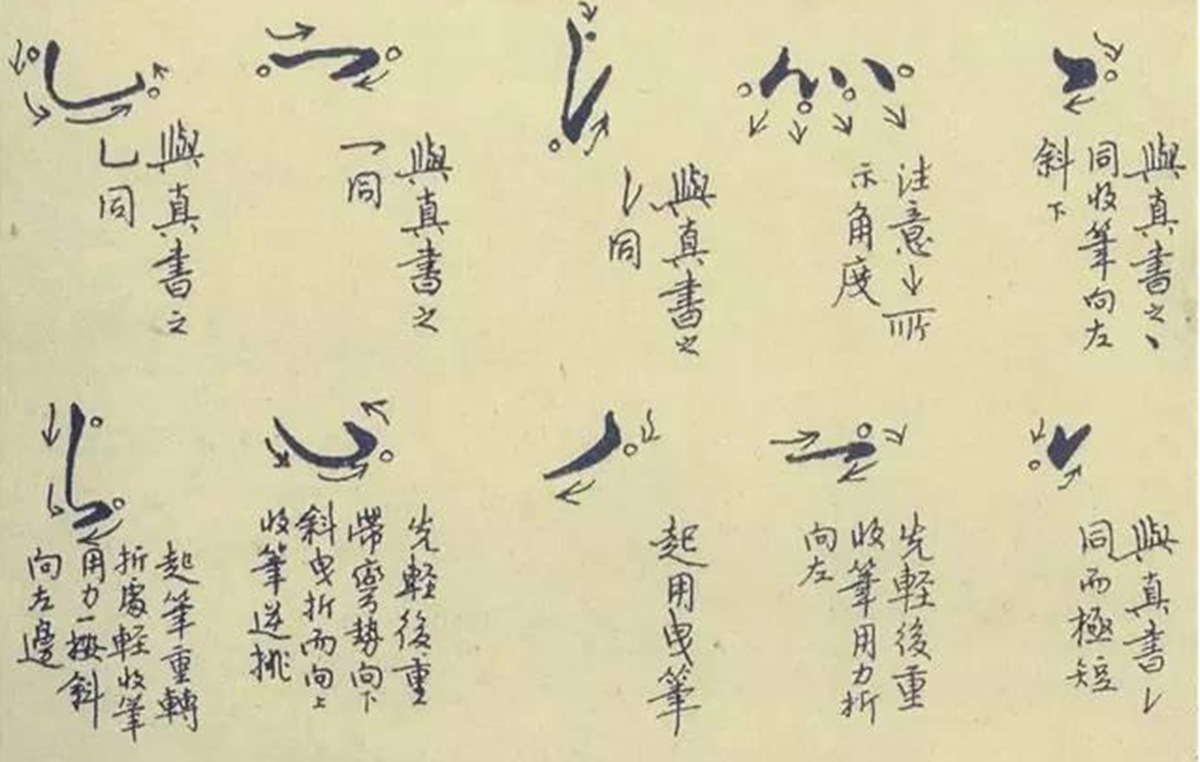 與真書之丶
同收筆向左
斜下
注意↓所
示角度
與真書之
𠄌同
與真書之
乛同
與真書之
乚同
與真書㇀
同而極短
先輕後重
收筆用力折
向左
起用曳筆
先輕後重
帶彎勢向下
斜曳折而向上
收筆逆挑
起筆重轉
折處輕收筆
用力一按斜
向左邊